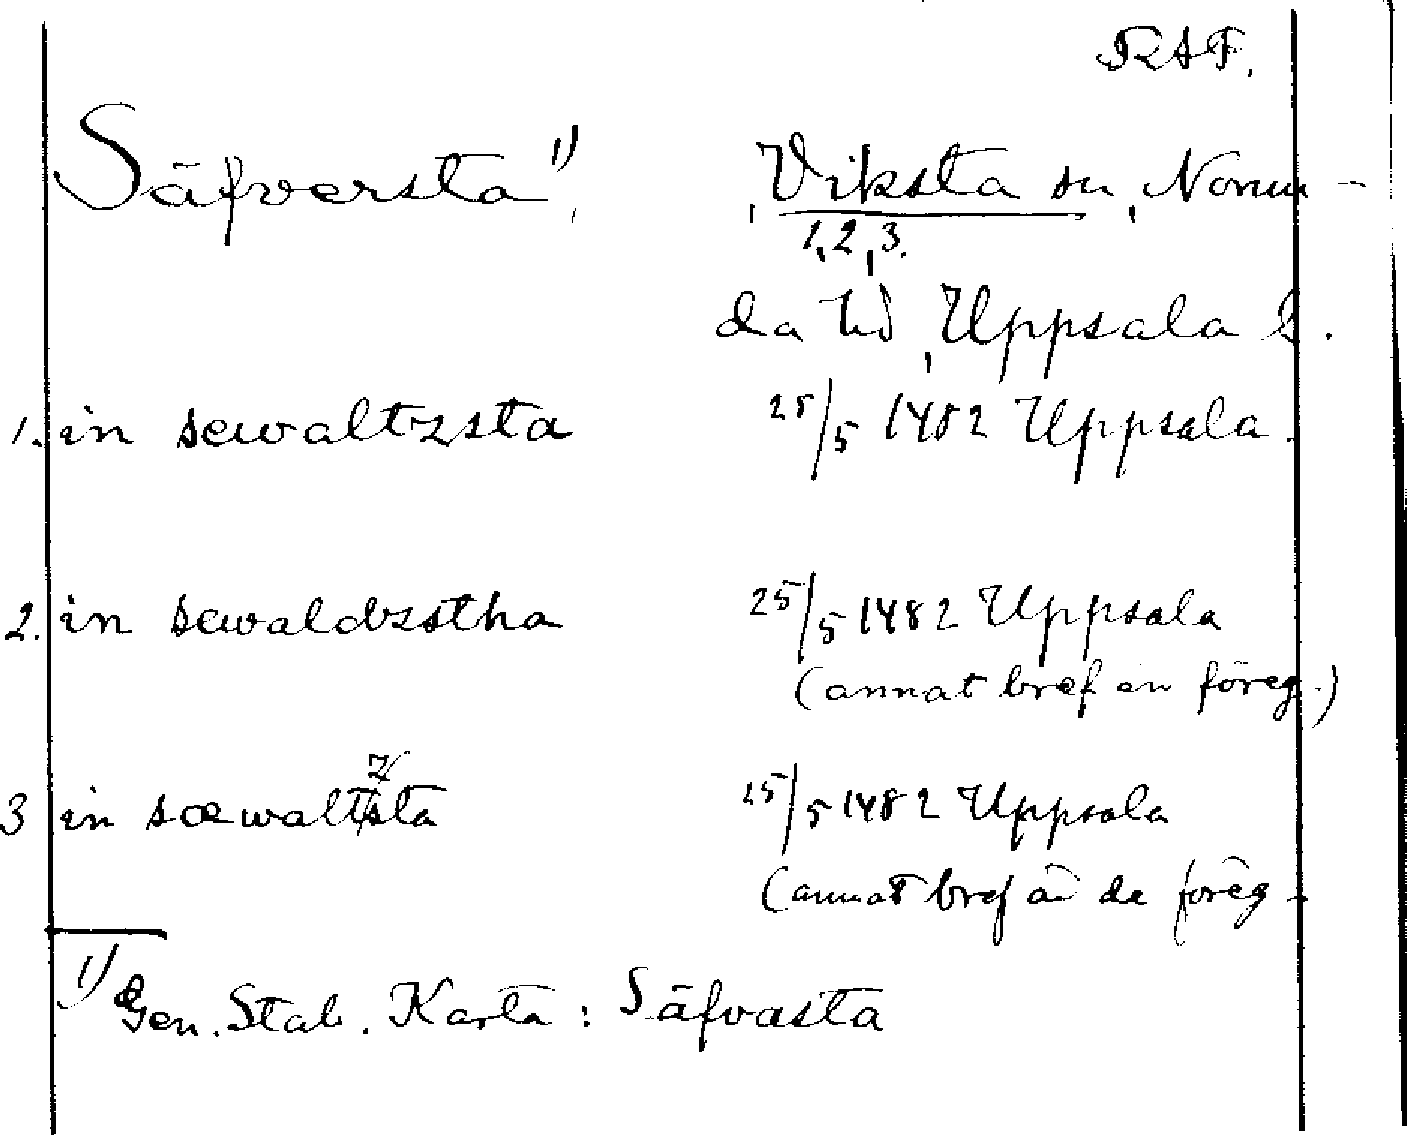 RAP.
Säfversta 1) Viksta sn, Norun-
1, 2, 3.
da hd, Uppsala l.
1. in sewaltzsta 25/5 1482 Uppsala.
2. in sewaldzstha 25/5 1482 Uppsala
(annat bref än föreg.)
3 in sæwaltzsta 25/5 1482 Uppsala
(annat bref än de föreg.
1) Gen. Stab. Karta: Säfvasta